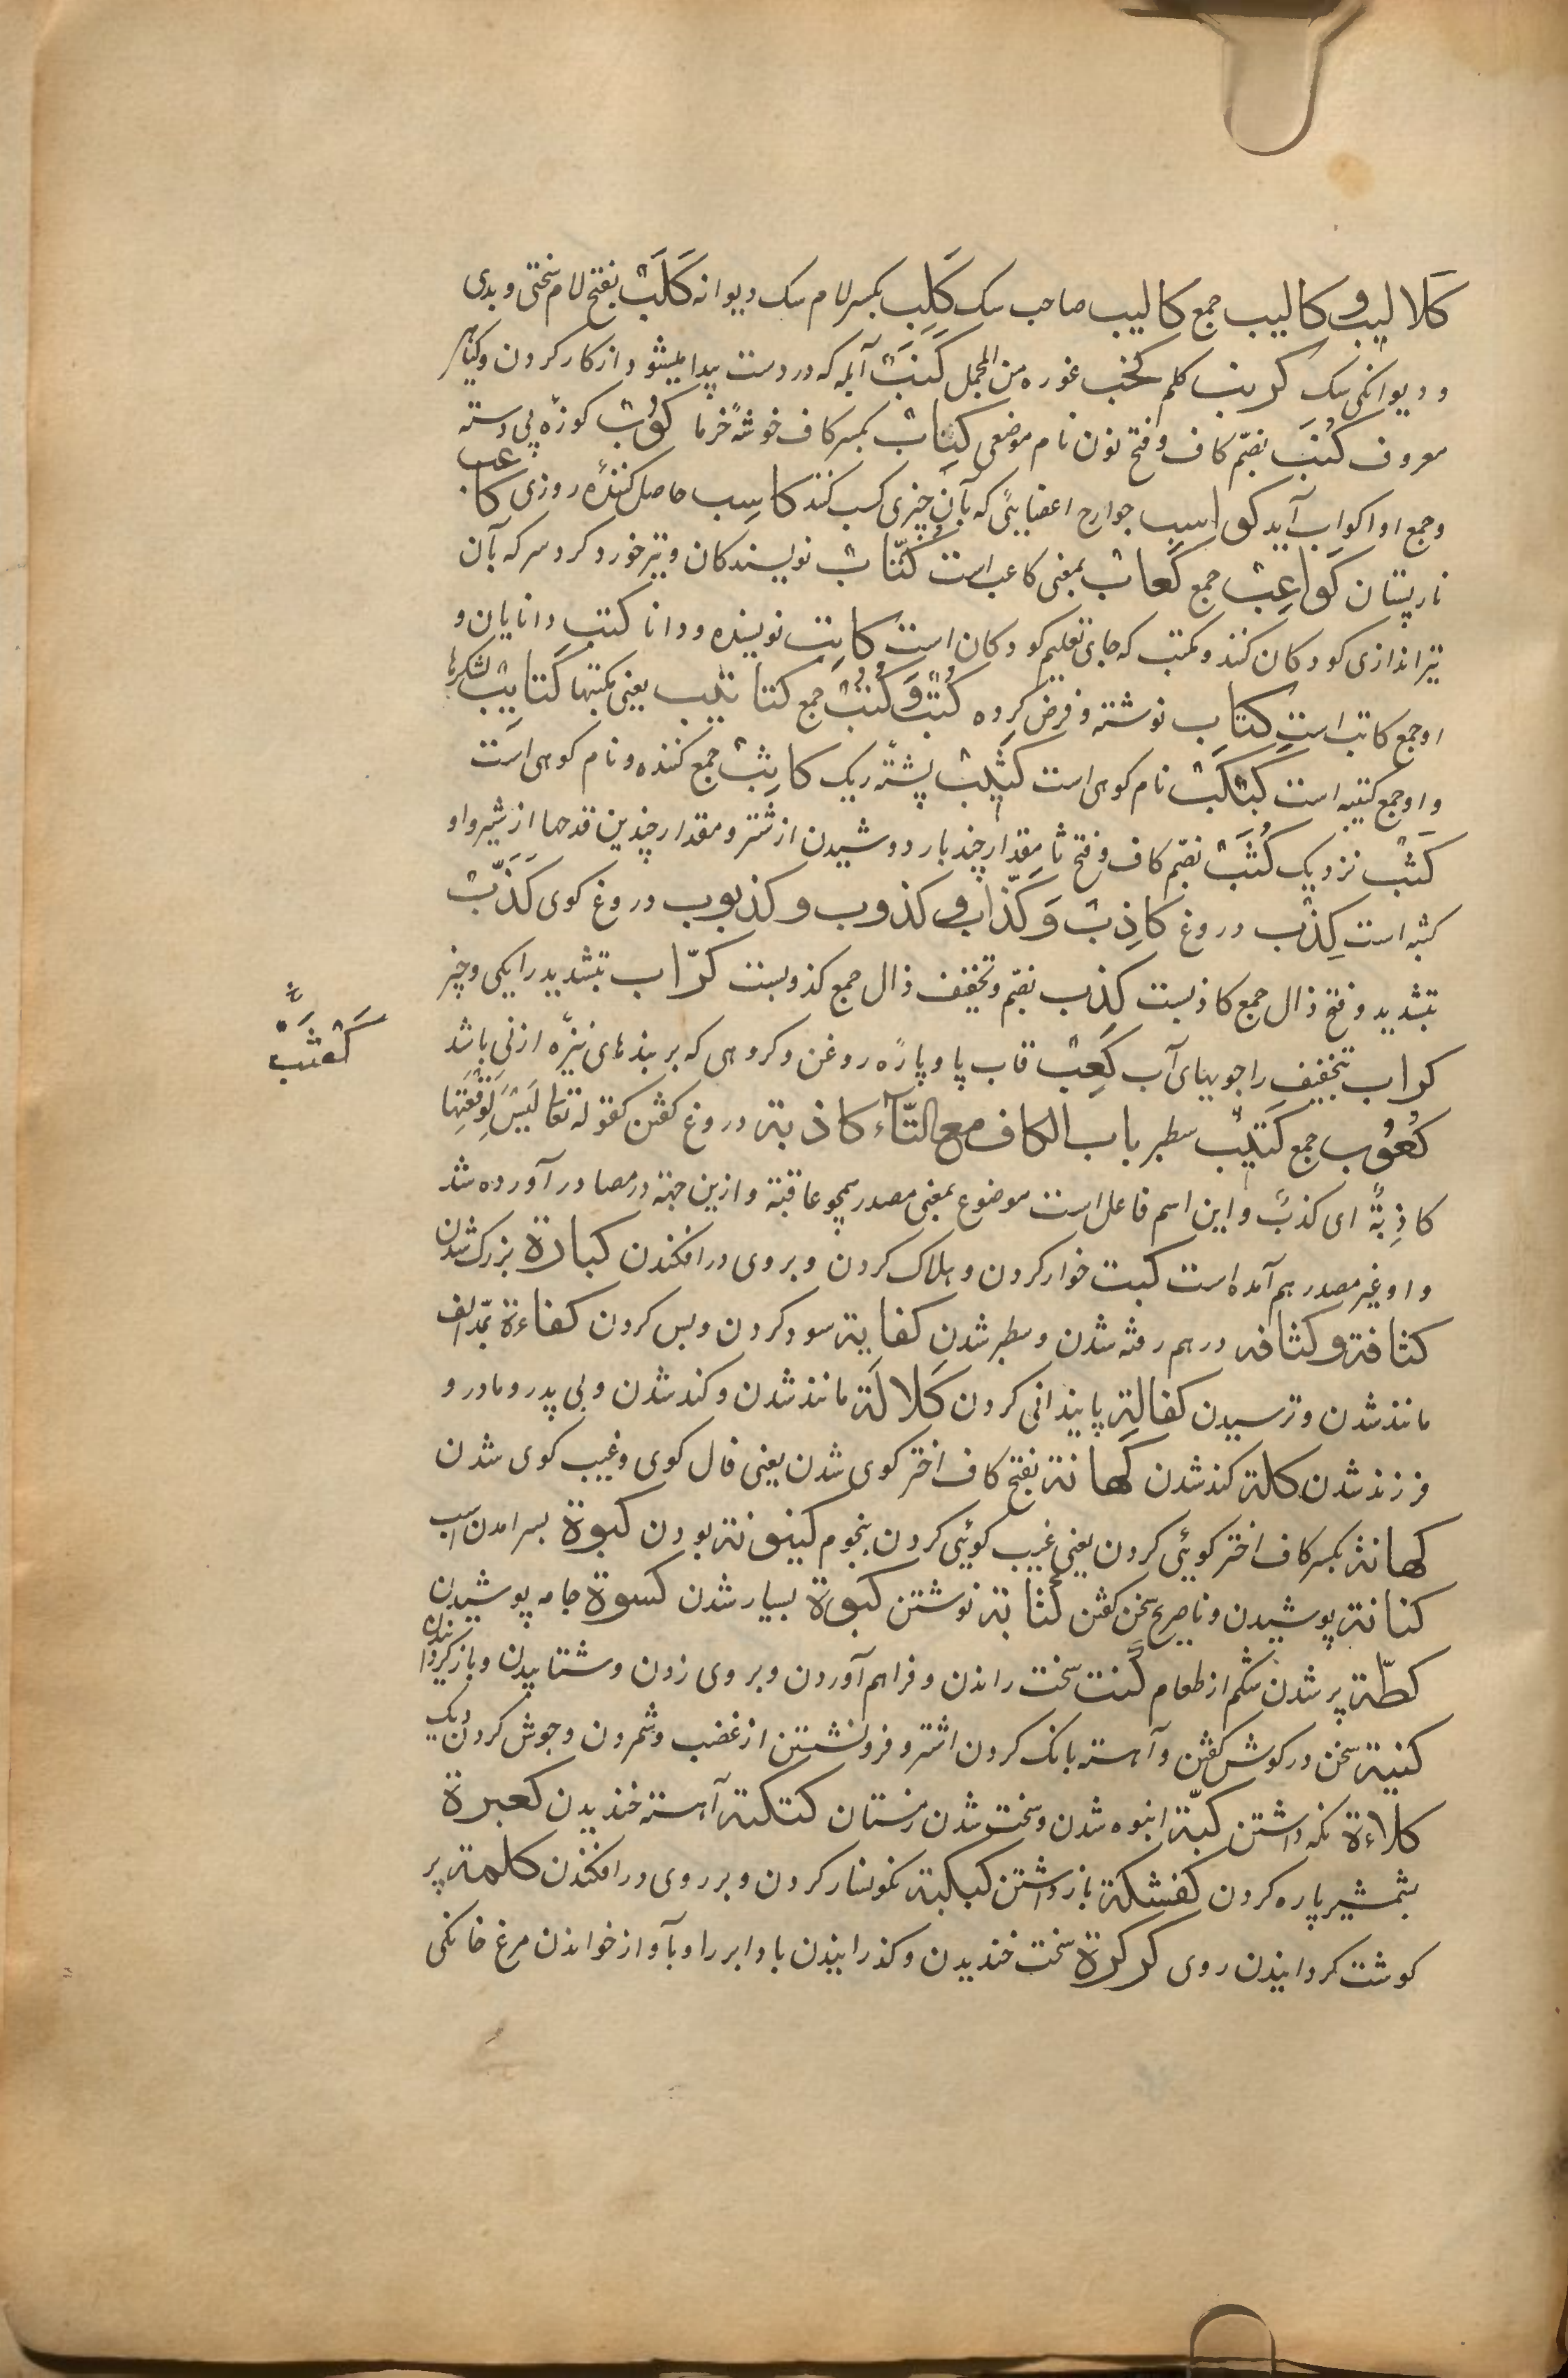 کَلالیب و کالیب جمع کالیب صاحب سک کَلِب بکسر لام سک دیوانه کَلَبْ بفتح لام سختی و بدی
و دیوانکی سک کرنب کلم کحْب غوره من المجمل کَنَبْ آبله که در دست پیدا میشود از کار کردن و کیاهی
معروف کُنَب بضمّ کاف و فتح نون نام موضعی کِتاب بکسر کاف خوشهٔ خرما کُوْب کوزهٔ بی دسته
و جمع او اکواب آید کواسب جوارح اعضایئی که بآن چیزی کسب کنند کاسِب حاصل کنندهٔ روزی کاعب
نارپستان کَواعِبْ جمع کَعابْ بمعنی کاعب است کُتّاب نویسندکان و تیر خورد کرد سر که بآن
تیراندازی کودکان کنند و مکتب که جای تعلیم کودکان است کاتِب نویسنده و دانا کَتَب دانایان و
او جمع کاتب است کِتاب نوشته و فرض کرده کُتْب وَ کُتُبْ جمع کتاتیب یعنی مکتبها کَتایِبْ لشکرها
و او جمع کتیبه است کَبْکَبْ نام کوهی است کَثیْب پشتهٔ ریک کاثِبْ جمع کننده و نام کوهی است
کَثَبْ نزدیک کُثَبْ بضمّ کاف و فتح ثا مقدار چند بار دوشیدن از شتر و مقدار چندین قدحها از شیر و او
کثبه است کِذْب دروغ کاذِبْ وَ کَذّاب و کذوب و کذبوب دروغ کوی کُذَّبْ
بتشدید و فتح ذال جمع کاذبست کُذُب بضمّ و تخفیف ذال جمع کذوبست کرّاب بتشدید را یکی و چیز
کراب بتخفیف را جویهای آب کَعْبْ قاب پا و پارهٔ روغن و کروهی که بر بندهای نیزه از نی باشد
کَعْثَبْ
کُعُوْب جمع کَتیْبْ سطبر باب الکاف مع التّآء کاذبة دروغ کفتن کقوله تعا لَیْسَ لِوَقْعَتِهَا
کاذِبَةٌ ای کذبٌ و این اسم فاعل است موضوع بمعنی مصدر همچو عاقبة و ازین جهة در مصادر آورده شد
و او غیر مصدر هم آمده است کبت خوار کردن و هلاک کردن و بروی در افکندن کبارة بزرک شدن
کثافة و کثافه درهم رفته شدن و سطبر شدن کفایة سود کردن و بس کردن کفاءة بمدّ الف
مانند شدن و ترسیدن کفالة پایندانی کردن کَلالَة مانند شدن و کند شدن و بی پدر و مادر و
فرزند شدن کلة کند شدن کَهانة بفتح کاف اختر کوی شدن یعنی فال کوی و غیب کوی شدن
کهانة بکسر کاف اختر کوئی کردن یعنی غیب کوئی کردن بنجوم کینونة بودن کبوة بسر آمدن اسب
کنانة پوشیدن و ناصریح سخن کفتن کتابة نوشتن کبورة بسیار شدن کسوة جامه پوشیدن
کظّة پر شدن شکم از طعام کَفت سخت راندن و فراهم آوردن و بروی زدن و شتابیدن و بازکردانیدن
کنیة سخن در کوش کفتن و آهسته بانک کردن اشتر و فرونشستن از غضب و شمردن و جوش کردن دیک
کلاءة نکه داشتن کبّة انبوه شدن و سخت شدن زمستان کتکتة آهسته خندیدن کعبرة
بشمشیر پاره کردن کفشکة باز داشتن کبکبة نکونسار کردن و بر روی در افکندن کلمة پر
کوشت کردانیدن روی کرکرة سخت خندیدن و کذرانیدن باد ابر را و بآواز خواندن مرغ خانکی